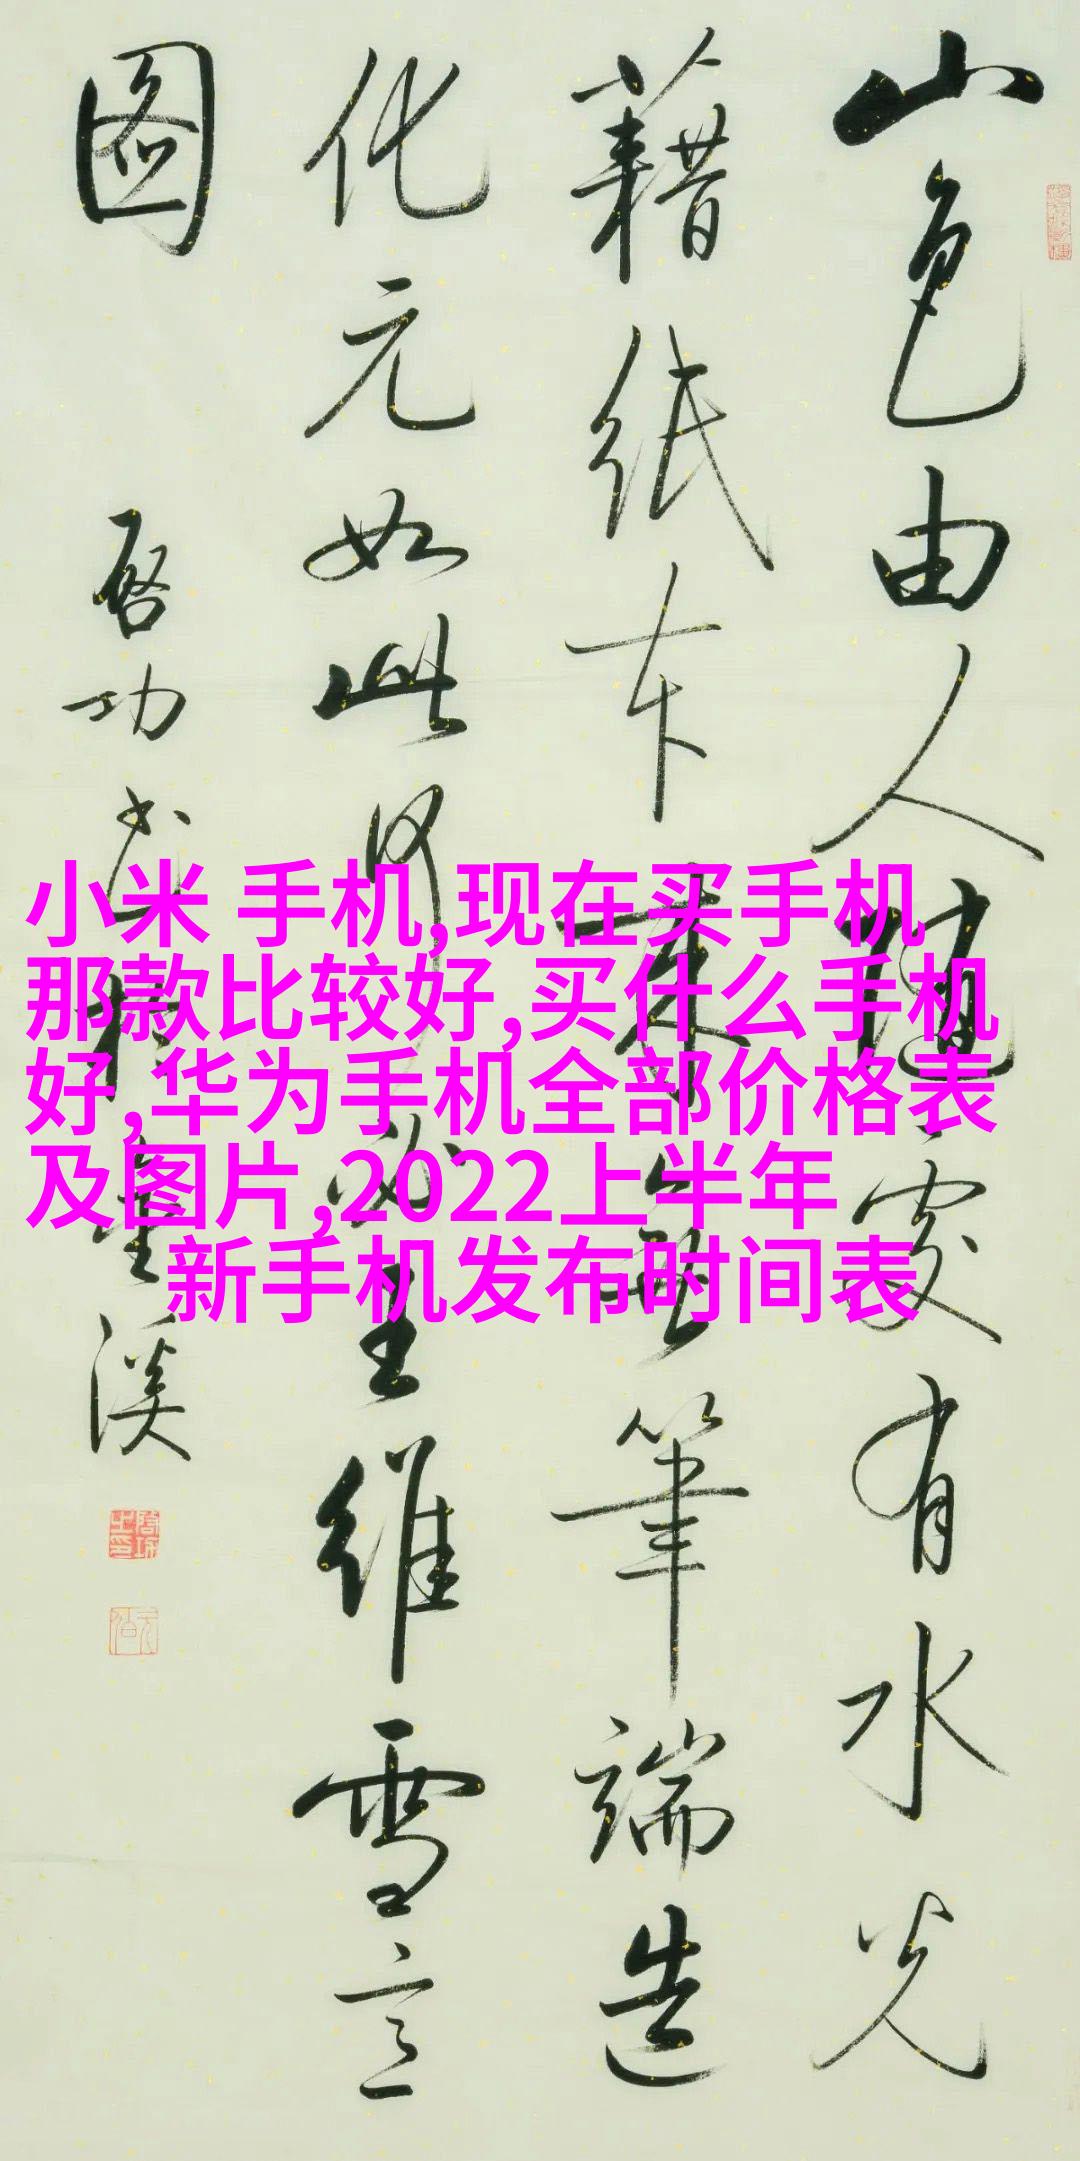 山色由人隨處有水光
藉紙本来無筆端造
化元如此何必王維雪
圖
启功书於溪
小米 手机,现在买手机
那款比较好,买什么手机
好,华为手机全部价格表
及图片,2022上半年
新手机发布时间表